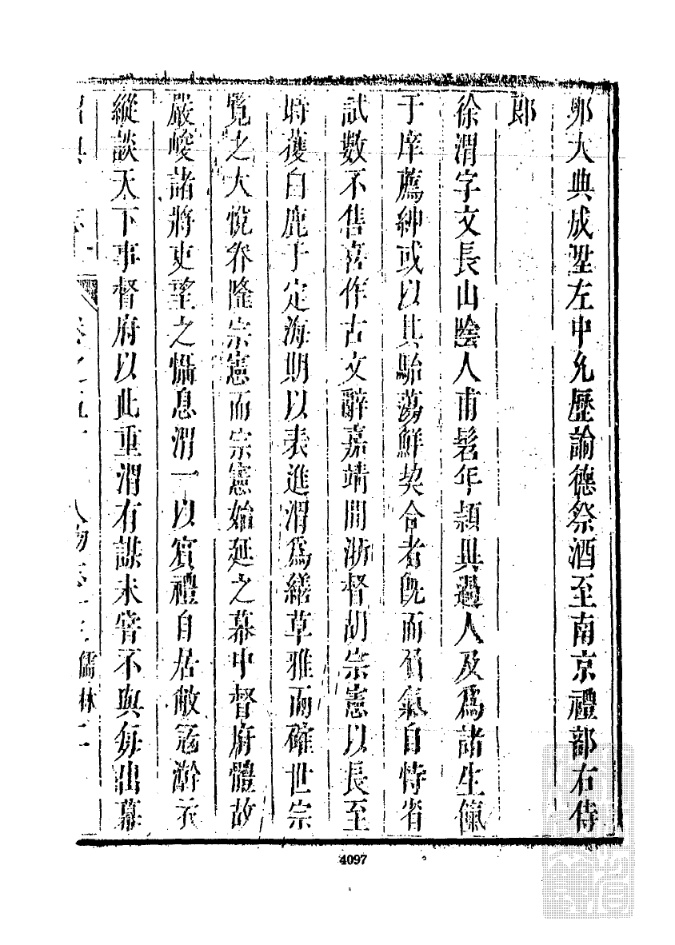 郊大典成陞左中允歷諭德祭酒至南京禮部右侍
郎
徐渭字文長山陰人甫髫年穎異過人及爲諸生傫
于庠薦紳或以其駘蕩鮮契合者旣而負氣自恃省
試數不售喜作古文辭嘉靖間浙督胡宗憲以長至
時獲白鹿于定海期以表進渭爲繕草雅而確世宗
覽之大悅眷隆宗憲而宗憲始延之幕中督府體故
嚴峻諸將吏望之懾息渭一以賓禮自居敝冠澣衣
縱談天下事督府以此重渭有謀未嘗不與每出幕
志 卷之五十 人物志 儒林二
4097